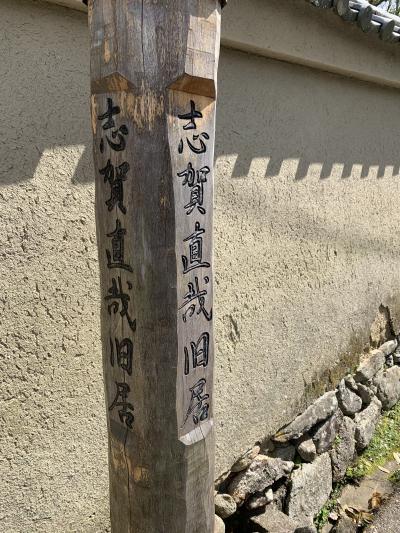 志賀直哉旧居
志賀直哉旧居